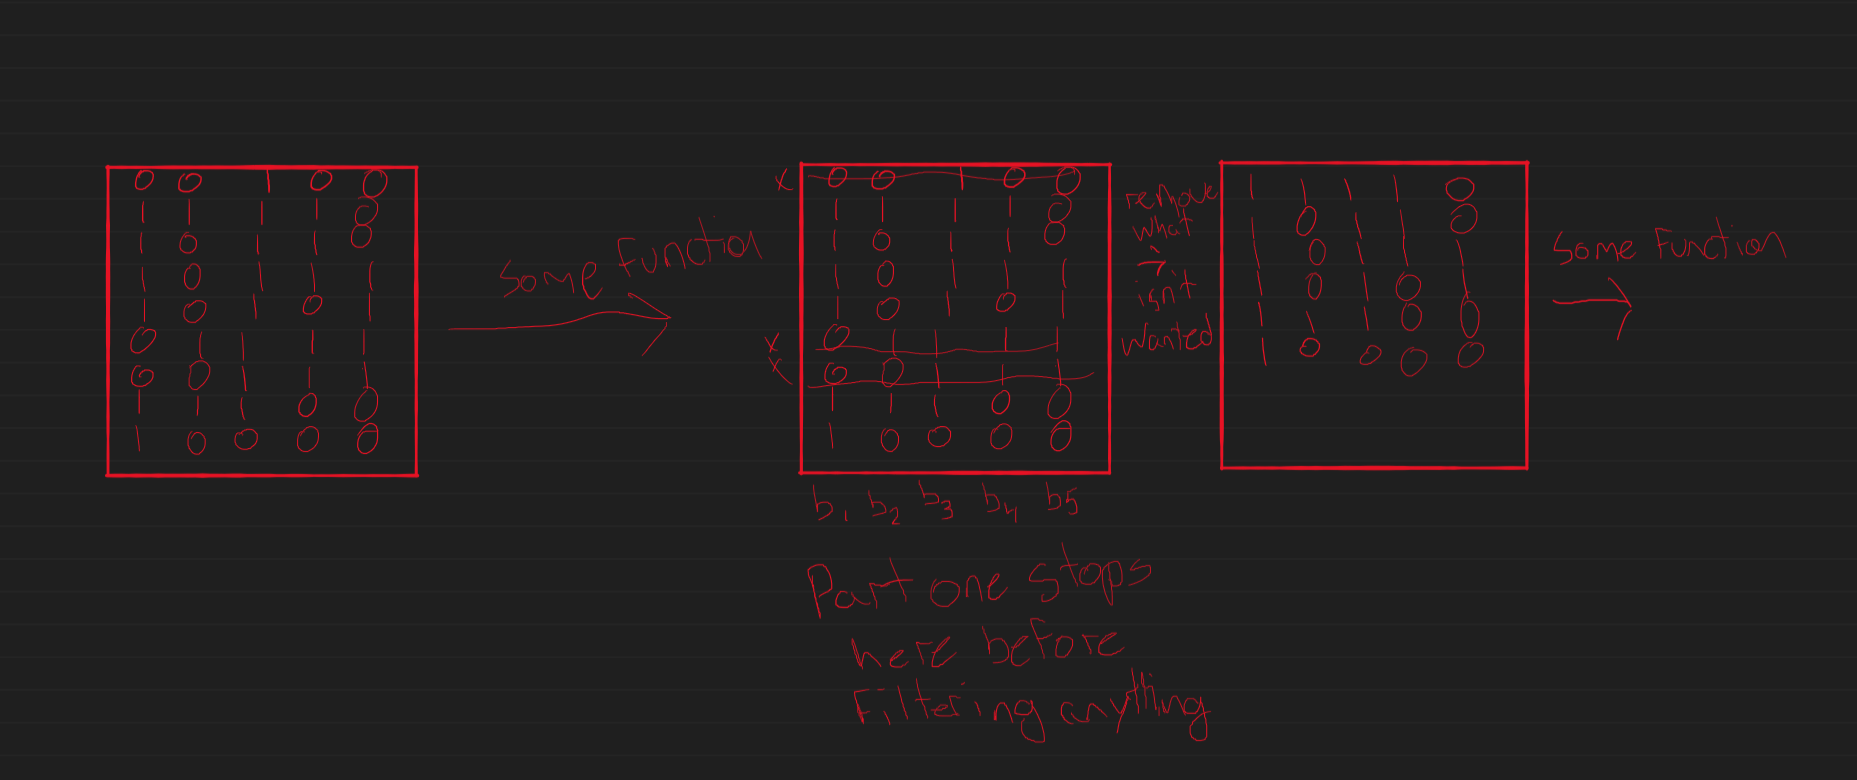 0 0 1 0 0
1 1 1 1 0
1 0 1 1 0
1 0 1 1 1
1 0 1 0 1
0 1 1 1 1
0 0 1 1 1
1 1 1 0 0
1 0 0 0 0
some function
x 0 0 1 0 0
1 1 1 1 0
1 0 1 1 0
1 0 1 1 1
1 0 1 0 1
x 0 1 1 1 1
x 0 0 1 1 1
1 1 1 0 0
1 0 0 0 0
b1 b2 b3 b4 b5
Part one stops
here before
filtering anything
remove
what
isn't
wanted
1 1 1 1 0
1 0 1 1 0
1 0 1 1 1
1 0 1 0 1
1 1 1 0 0
1 0 0 0 0
some function